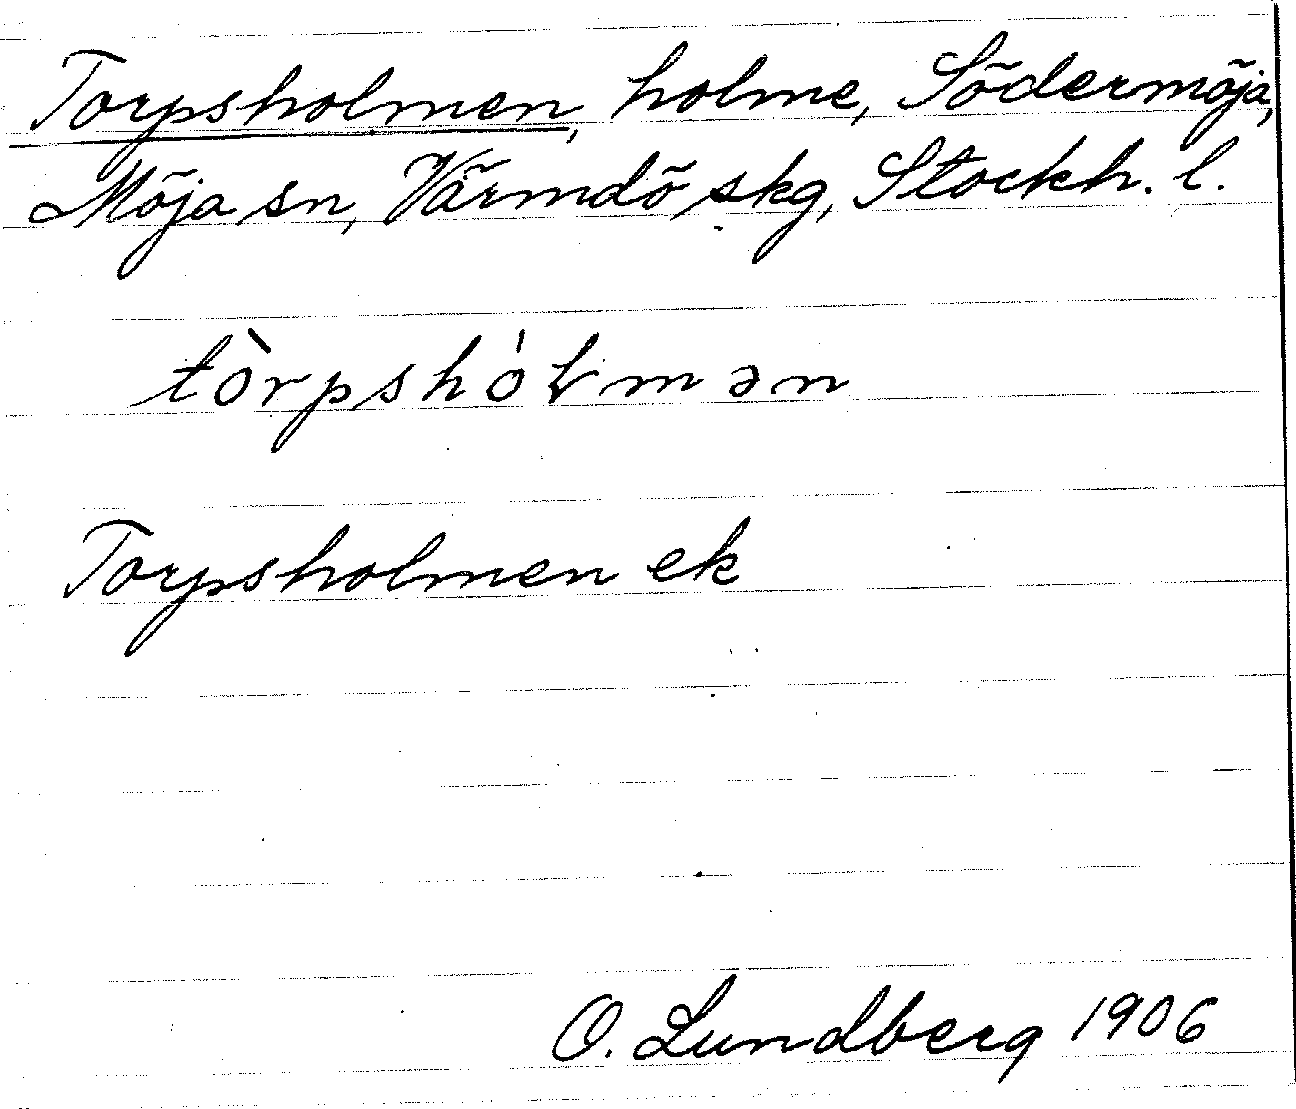 Torpsholmen, holme, Södermöja,
Möja sn, Värmdö skg, Stockh. l.
tòrpshóɫmən
Torpsholmen ek
O. Lundberg 1906